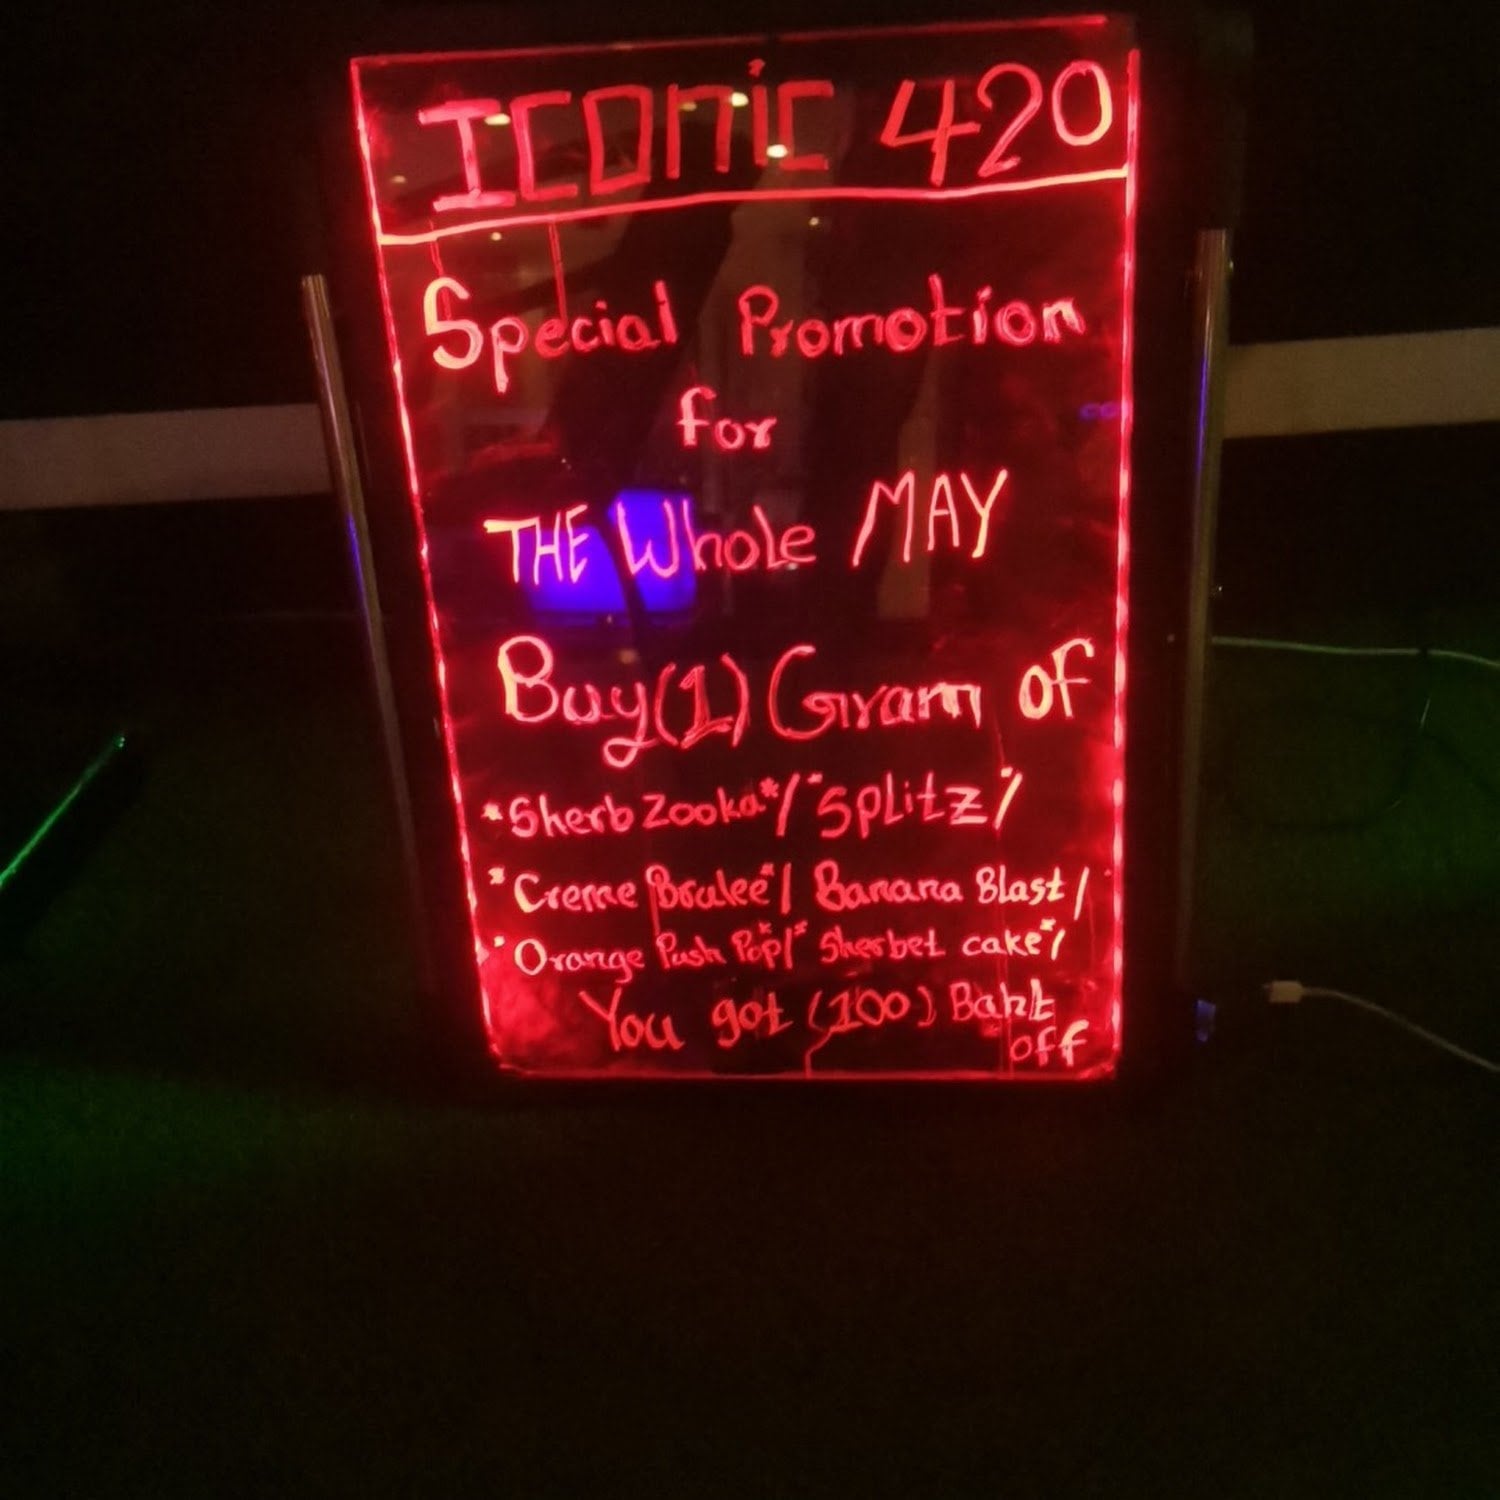 ICONIC 420
Special Promotion
for
THE Whole MAY
Buy (1) Gram of
*Sherb Zooka*/ "Splitz"/
"Creme Brulee"/ Banana Blast /
"Orange Push Pop"/" Sherbet cake"/
You got (100) Baht
off